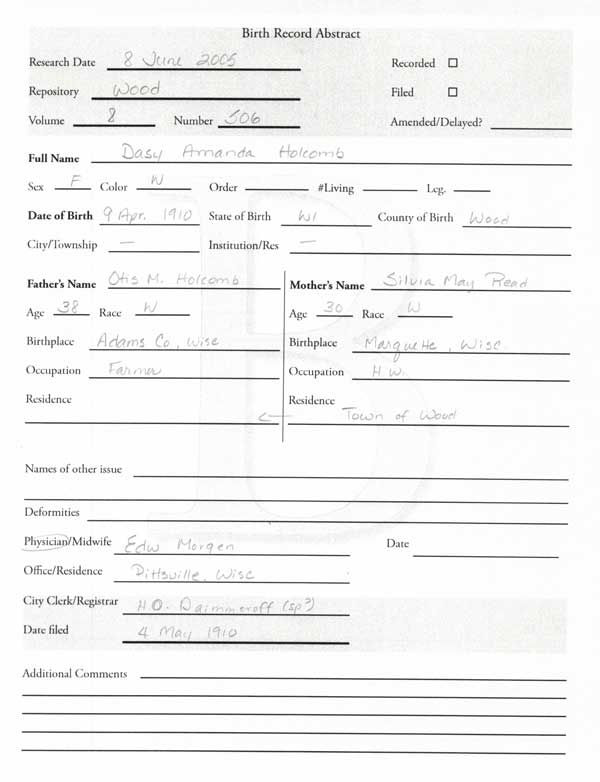 Birth Record Abstract
Research Date 8 June 2005 Recorded
Repository Wood Filed
Volume 8 Number 506 Amended/Delayed?
Full Name Dasy Amanda Holcomb
Sex F Color W Order #Living Leg.
Date of Birth 9 Apr. 1910 State of Birth WI County of Birth Wood
City/Township — Institution/Res —
Father's Name Otis M. Holcomb Mother's Name Silvia May Read
Age 38 Race W Age 30 Race W
Birthplace Adams Co, Wisc Birthplace Marquette, Wisc.
Occupation Farmer Occupation H.W.
Residence Residence
← Town of Wood
Names of other issue
Deformities
Physician/Midwife Edw Morgen Date
Office/Residence Pittsville, Wisc
City Clerk/Registrar H.O. (sp?)
Date filed 4 May 1910
Additional Comments
B